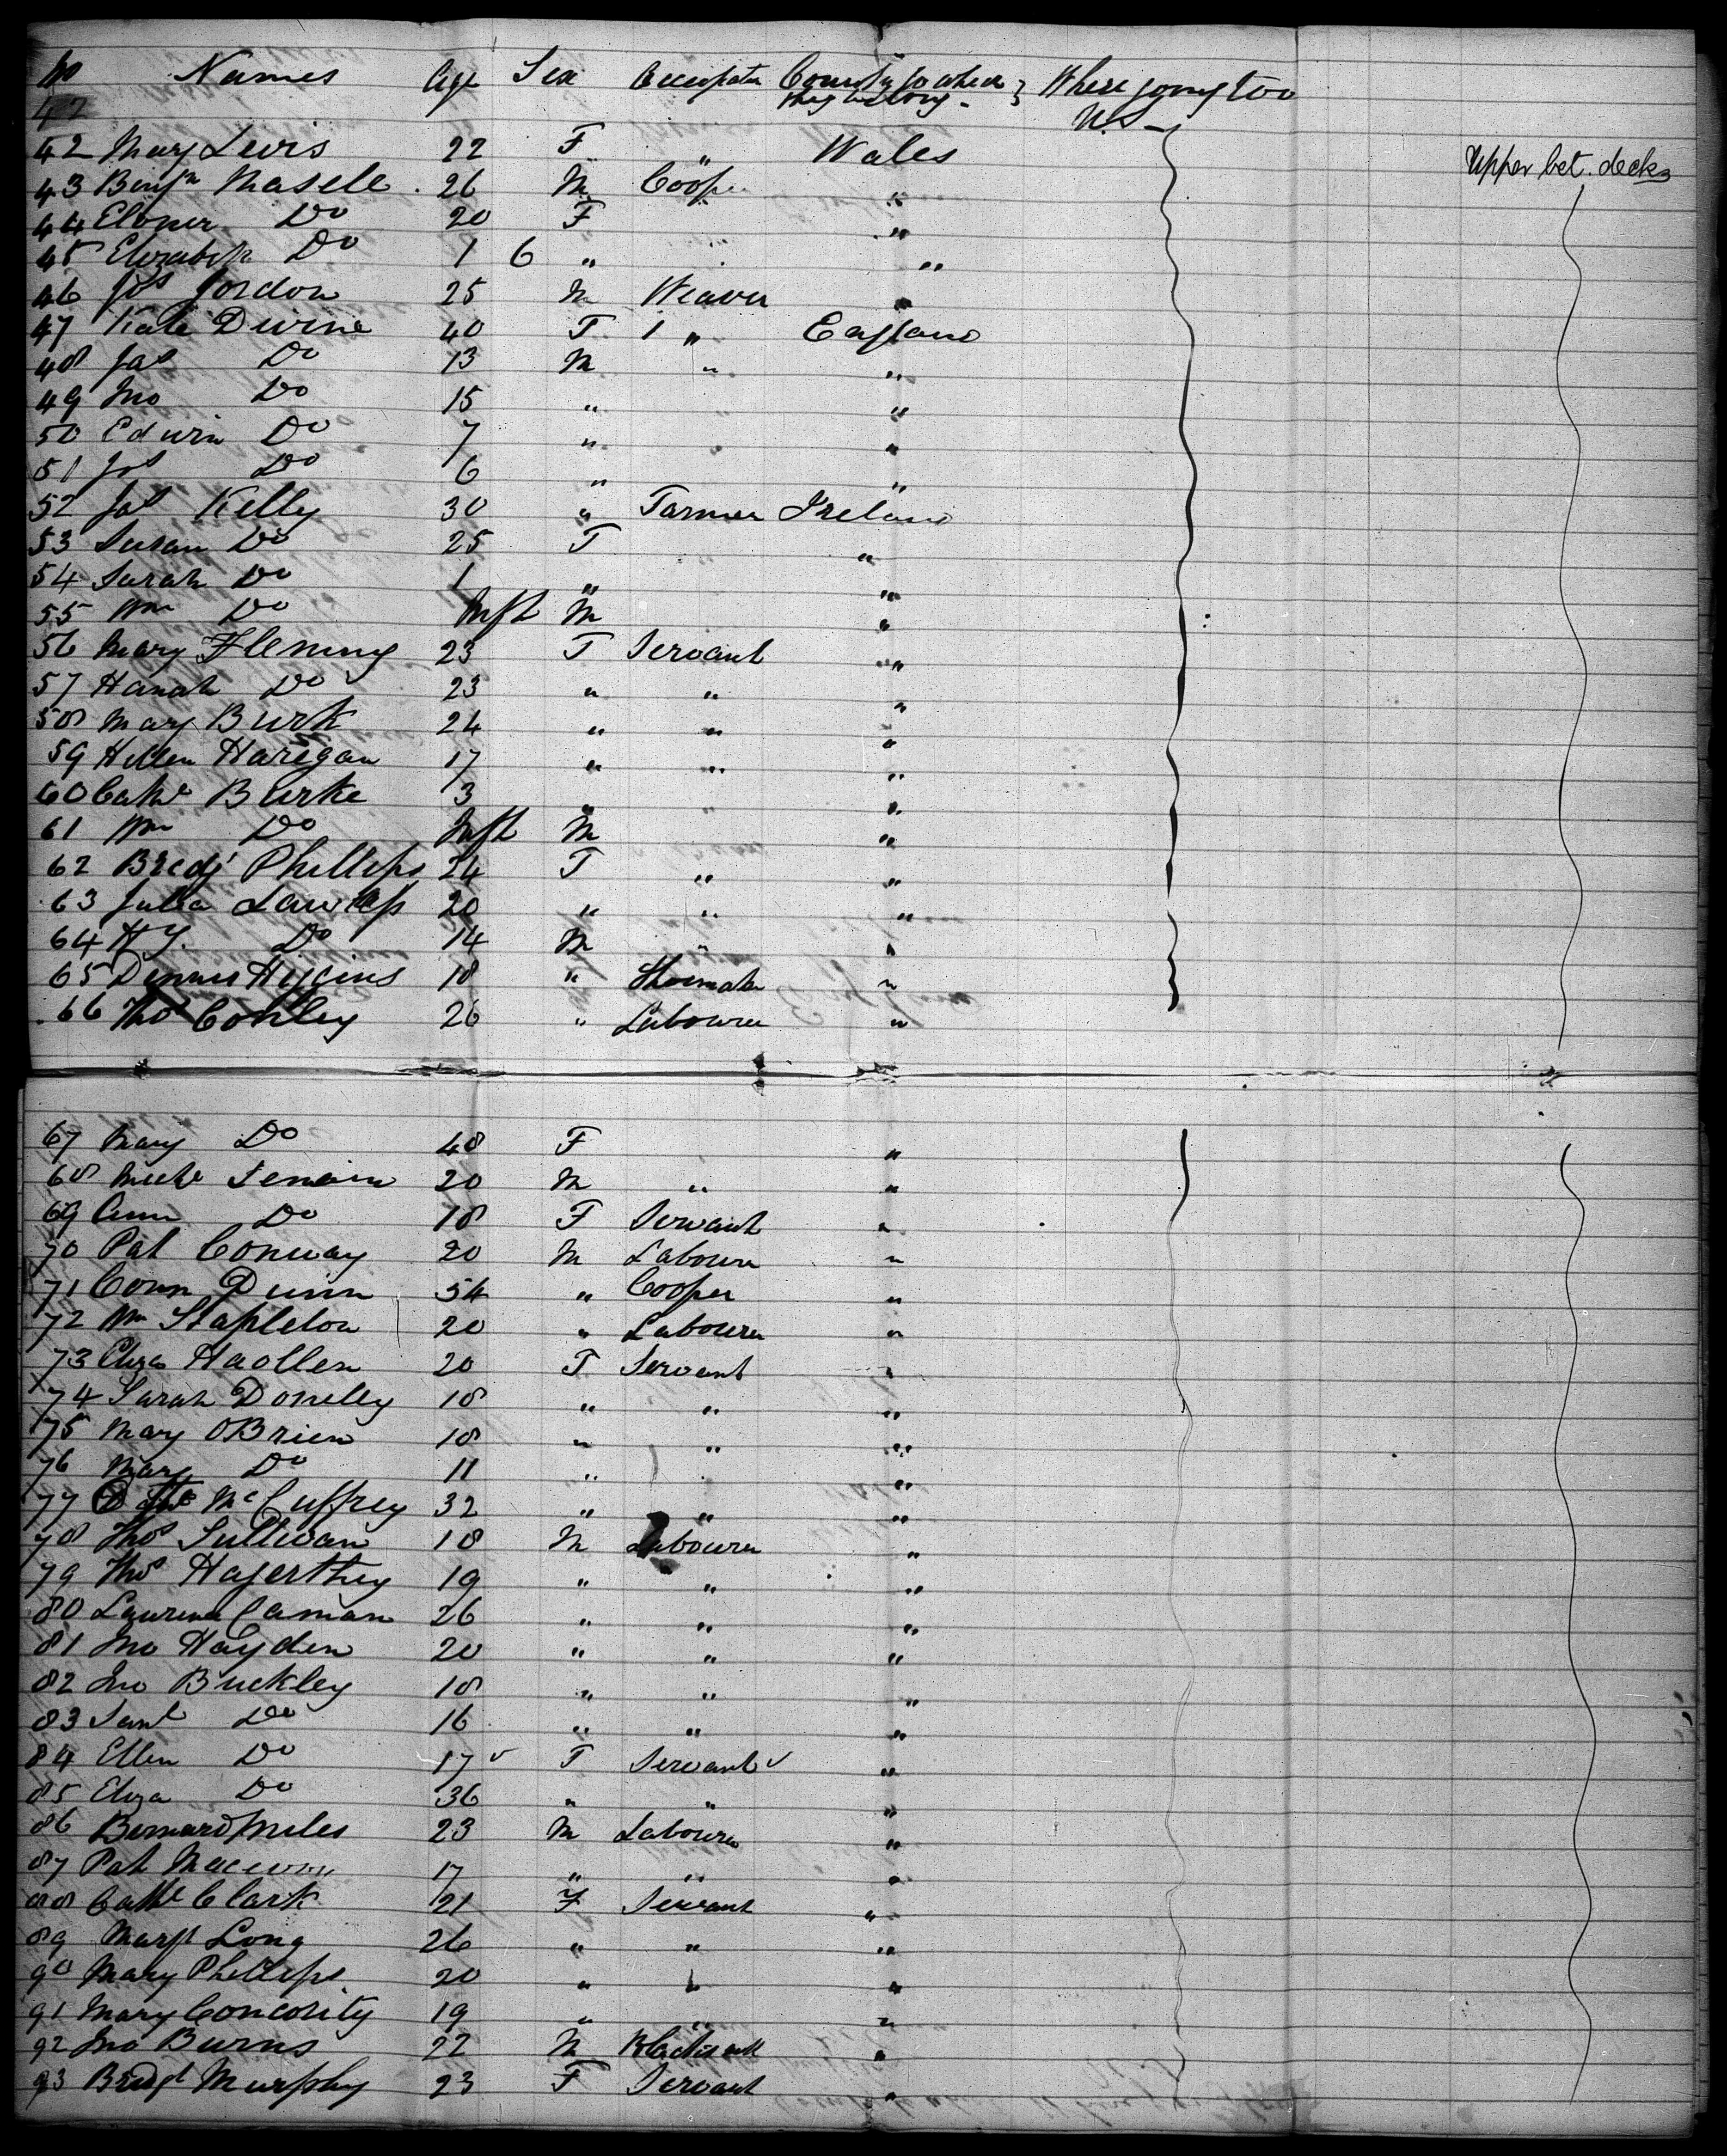 No Names Age Sex Occupatn Country to which they belong - } Where going too
42 U.S -
42 Mary Levis 22 F " Wales Upper bet. decks
43 Benjn Masell 26 M Cooper "
44 Eloner Do 20 F "
45 Elizabeth Do 1 6 " "
46 Jos Jordon 25 M Weaver "
47 Kate Divine 40 F " England
48 Jas Do 13 M " "
49 Jno Do 15 " " "
50 Edwin Do 7 " "
51 Jos Do 6 " "
52 Jas Kelly 30 " Farmer Ireland
53 Susan Do 25 F "
54 Sarah Do 1 " "
55 Wm Do Inft M "
56 Mary Fleming 23 F Servant "
57 Hanah Do 23 " " "
58 Mary Burk 24 " " "
59 Hellen Haregan 17 " " "
60 Cathe Burke 3 " "
61 Wm Do Inft M "
62 Bredg Phillips 24 F " "
63 Julia 20 " " "
64 Hy. Do 14 M " "
65 Dennis Higgins 18 " Shoemaker "
66 Thos Conley 26 " Labourer "
67 Mary Do 48 F "
68 Michl 20 M " "
69 Ann Do 18 F Servant "
70 Pat Conway 20 M Labourer "
71 Conn Dunn 54 " Cooper "
72 Wm Stapleton 20 " Labourer "
73 Eliza 20 F Servant "
74 Sarah Donelly 18 " " "
75 Mary OBrien 18 " " "
76 Mary Do 11 " "
77 McCuffrey 32 " " "
78 Thos Sullivan 18 M Labourer "
79 Thos Hagerthey 19 " " "
80 Laurence Caman 26 " " "
81 Jno Hayden 20 " " "
82 Jno Buckley 18 " " "
83 Saml Do 16 " " "
84 Ellen Do 17 F Servant "
85 Eliza Do 36 " " "
86 Bernard Miles 23 M Labourer "
87 Pat 17 " " "
88 Cathe Clark 21 F Servant "
89 Margt Long 26 " " "
90 Mary Phillips 20 " " "
91 Mary Concority 19 " " "
92 Jno Burns 22 M "
93 Bridgt Murphy 23 F Servant "